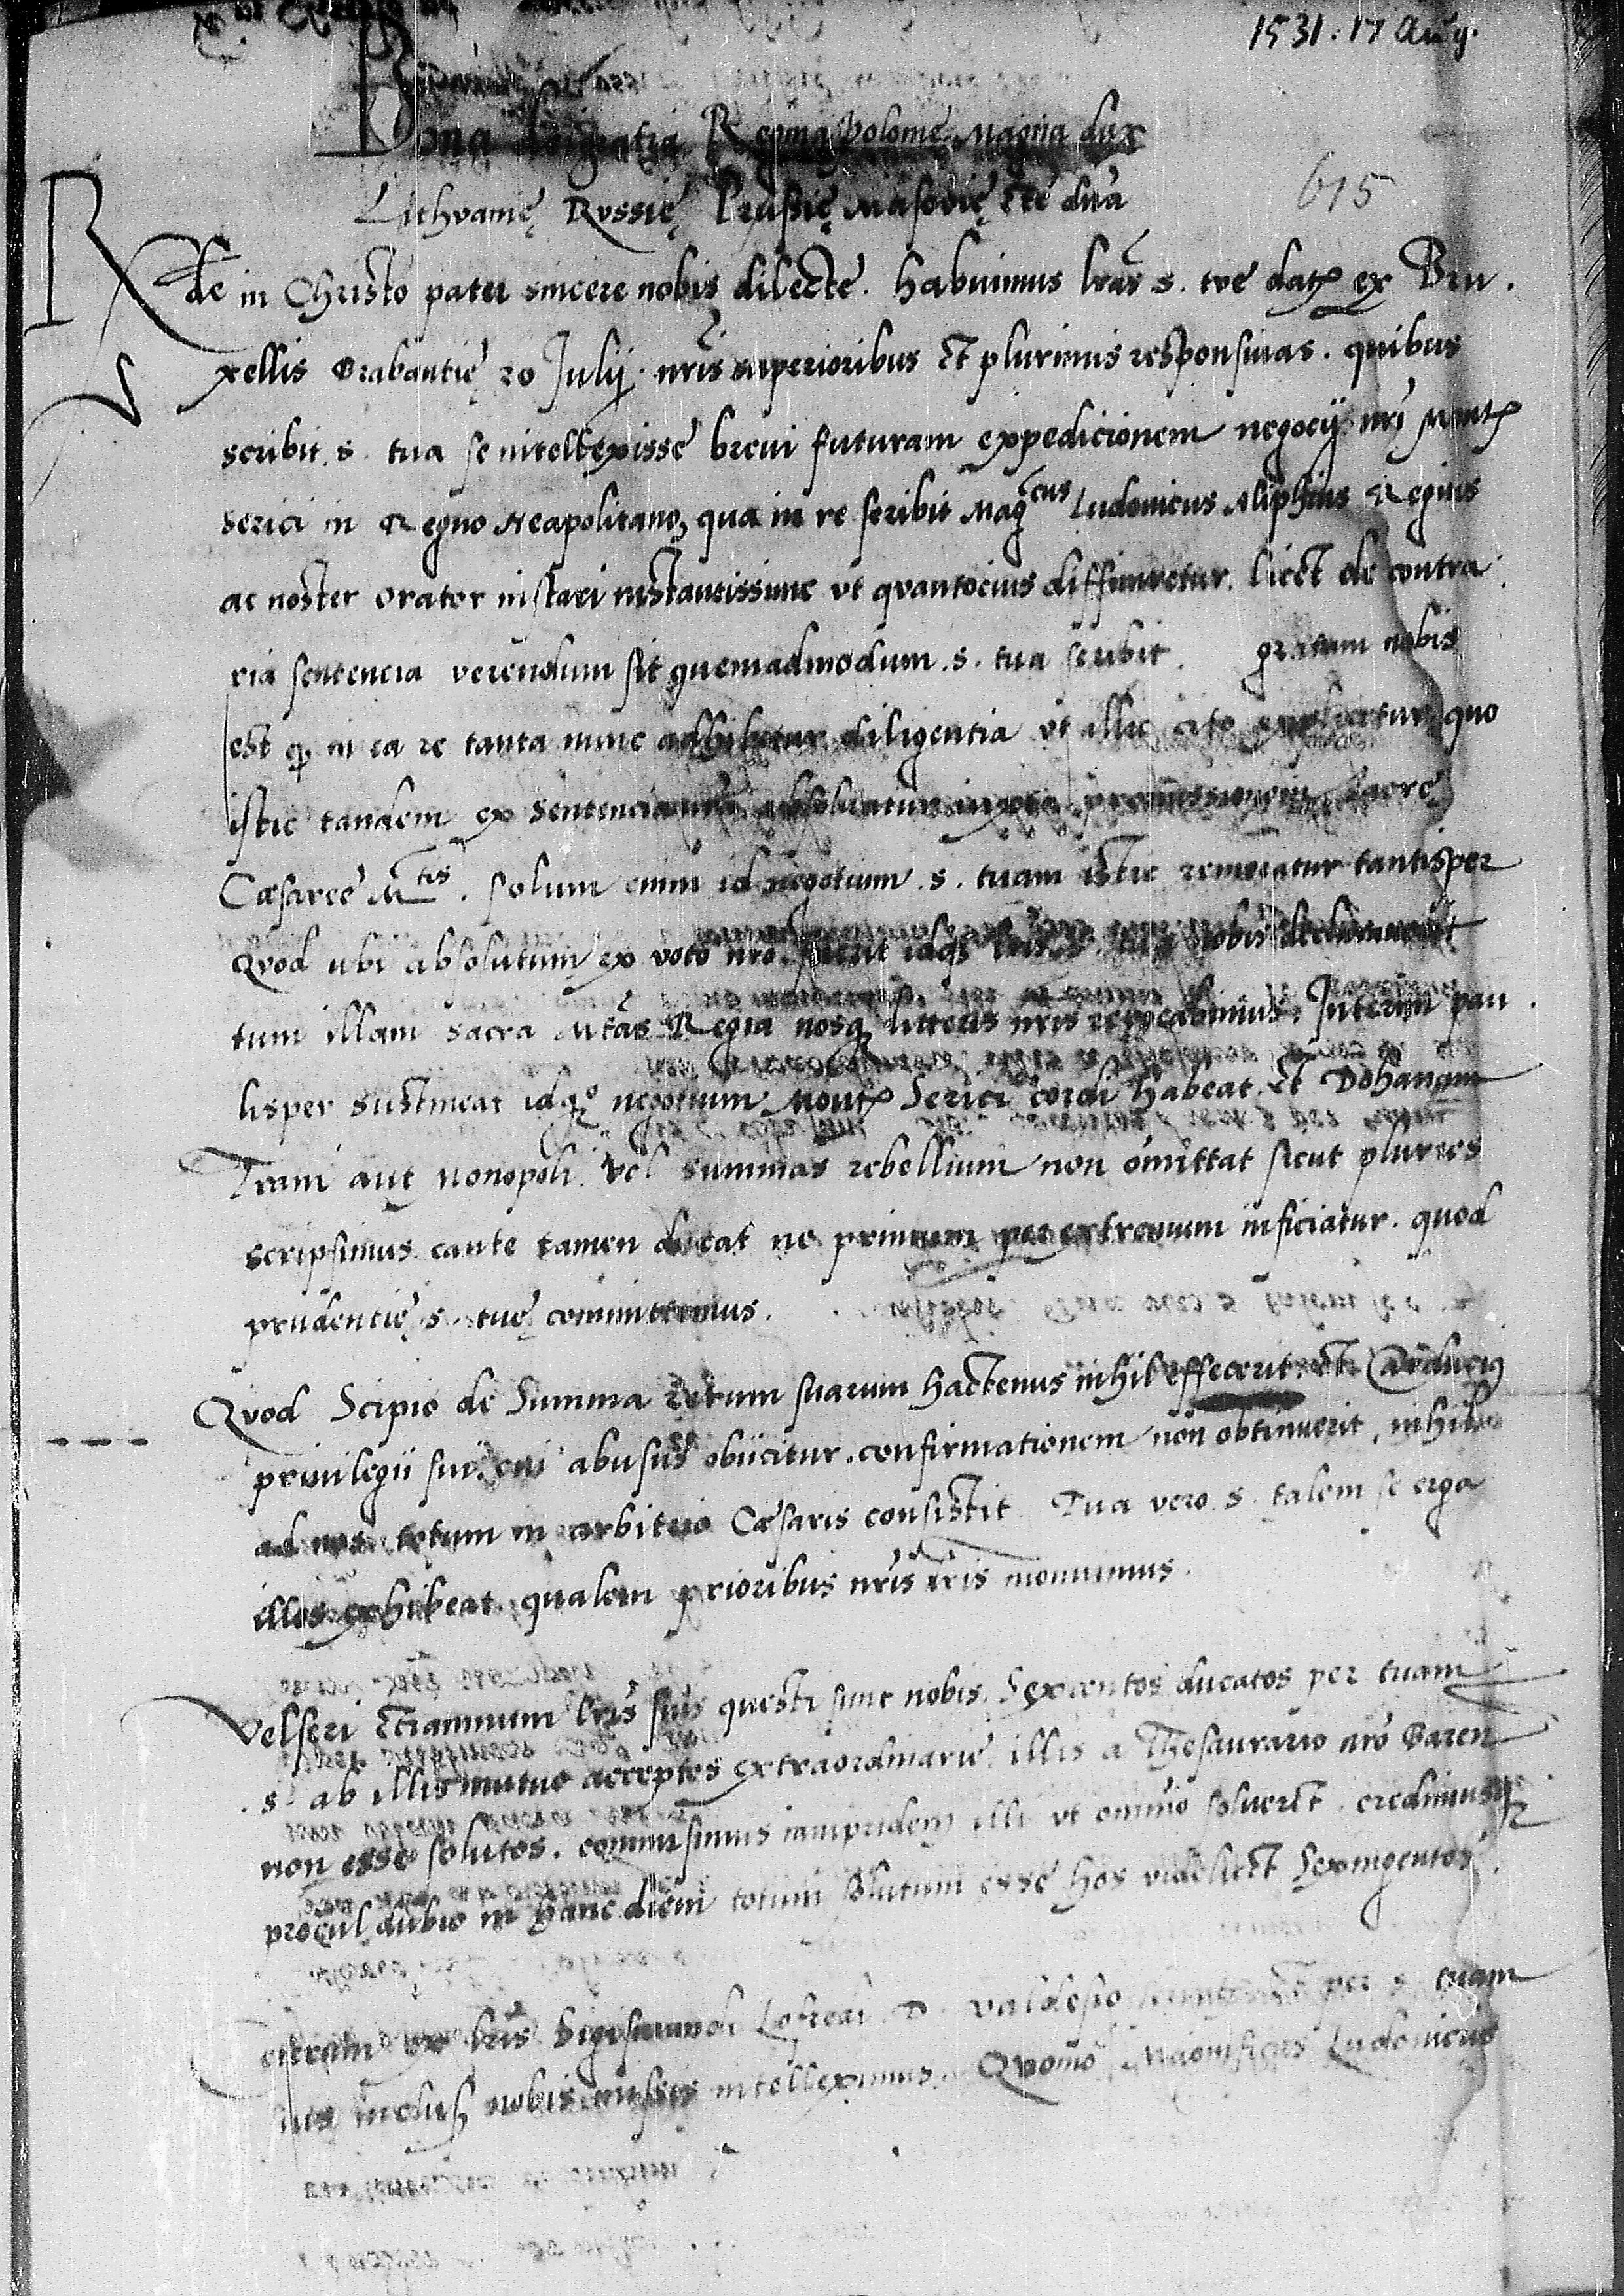 1531: 17 Aug.
Bona dei gratia Regina Polonie Magna dux
Lithuanię Russię Prussię Masovię etc dn̄a
615
Rde in Christo pater sincere nobis dilecte. habuimus lr̄as s. tve datas ex Bru.
xellis Brabantię 20 Julij nr̄is superioribus et plurimis responsivas. quibus
scribit s. tua se intellexisse brevi futuram expedicionem negocij nr̄i Montis
serici in Regno Neapolitano, qua in re scribit Mag^cus Ludovicus Aliphius Regius
ac noster orator instari instantissime vt qvantocius diffiniretur. licet de contra
ria sentencia verendum sit quemadmodum s. tua scribit. gratum nobis
est q in ea re tanta nunc adhibetur diligentia vt illic cito expliretur quo
istic tandem ex sentencia nr̄a absolvatur iuxta promissionem Sacre
Cæsaree M^tis. solum enim id negotium s. tuam istic remoratur tantisper
Qvod ubi absolutum ex voto nr̄o fuerit idq lr̄is s. tua nobis declaraverit
tum illam sacra M^tas Regia nosq litteris nr̄is revocabimus. Interim pau.
lisper sustineat idq negotium Montis Serici cordi habeat. Et Dohanam
Trani aut Monopoli vel summas rebellium non omittat sicut pluries
scripsimus. caute tamen ducat ne primum per extremum inficiatur. quod
prudentię s. tuę committimus.
Qvod Scipio de Summa rerum suarum hactenus nihil effecerit. et Carducius
privilegii sui, cui abusus obiicitur. confirmationem non obtinuerit, nihil
ad nos. totum in arbitrio Cæsaris consistit. Tua vero s. talem se erga
illos exhibeat qualem prioribus nr̄is lr̄is monuimus.
Velseri etiamnum lr̄is suis questi sunt nobis. Sexcentos ducatos per tuam
s. ab illis mutuo acceptos extraordinarie illis a Thesaurario nr̄o Baren
non esse solutos. commisimus iampridem illi vt omnino solveret. credimusq
procul dubio in hanc diem totum solutum esse hos videlicet Sexingentos.
Ceterum ex lr̄is Sigismundi Lofredi D. Valdesio per s. tuam
suis inclusis nobis missis intelleximus. Qvomo Magnificus Ludovicus